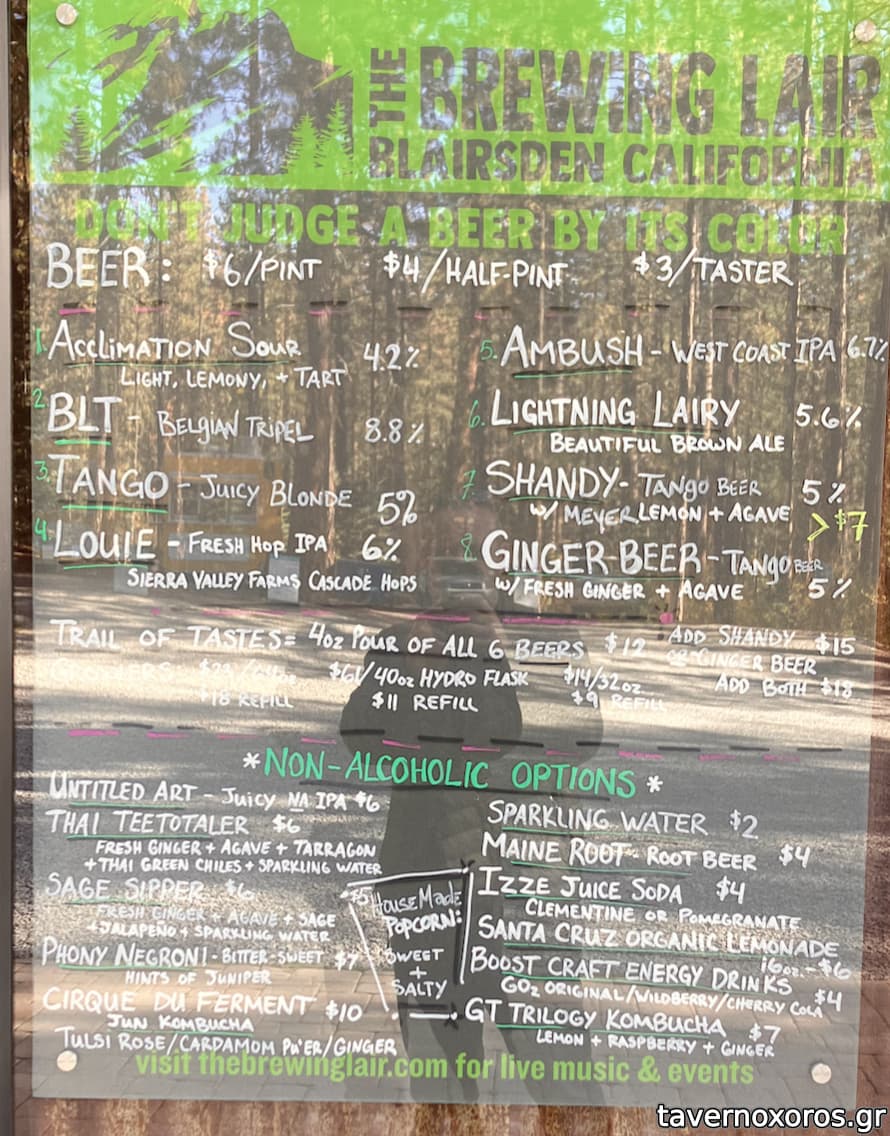 THE BREWING LAIR
BLAIRSDEN CALIFORNIA
DON'T JUDGE A BEER BY ITS COLOR
BEER: $6/PINT $4/HALF-PINT $3/TASTER
1. ACCLIMATION SOUR 4.2%
LIGHT, LEMONY, + TART
2. BLT - BELGIAN TRIPEL 8.8%
3. TANGO - JUICY BLONDE 5%
4. LOUIE - FRESH HOP IPA 6%
SIERRA VALLEY FARMS CASCADE HOPS
5. AMBUSH - WEST COAST IPA 6.7%
6. LIGHTNING LAIRY 5.6%
BEAUTIFUL BROWN ALE
7. SHANDY - TANGO BEER 5%
W/ MEYER LEMON + AGAVE
> $7
8. GINGER BEER - TANGO BEER
W/ FRESH GINGER + AGAVE 5%
TRAIL OF TASTES = 4oz POUR OF ALL 6 BEERS $12
ADD SHANDY $15
OR GINGER BEER
ADD BOTH $18
$61/40oz HYDRO FLASK $14/32oz
$18 REFILL $11 REFILL $9 REFILL
*NON-ALCOHOLIC OPTIONS*
UNTITLED ART - JUICY NA IPA $6
THAI TEETOTALER $6
FRESH GINGER + AGAVE + TARRAGON
+ THAI GREEN CHILES + SPARKLING WATER
SAGE SIPPER $6
FRESH GINGER + AGAVE + SAGE
+ JALAPEÑO + SPARKLING WATER
PHONY NEGRONI - BITTER-SWEET $7
HINTS OF JUNIPER
CIRQUE DU FERMENT $10
JUN KOMBUCHA
TULSI ROSE/CARDAMOM PU'ER/GINGER
$5 HOUSE MADE
POPCORN:
SWEET
+
SALTY
SPARKLING WATER $2
MAINE ROOT - ROOT BEER $4
IZZE JUICE SODA $4
CLEMENTINE OR POMEGRANATE
SANTA CRUZ ORGANIC LEMONADE
16oz - $6
BOOST CRAFT ENERGY DRINKS
GO2 ORIGINAL/WILDBERRY/CHERRY COLA $4
GT TRILOGY KOMBUCHA $7
LEMON + RASPBERRY + GINGER
visit thebrewinglair.com for live music & events
tavernoxoros.gr